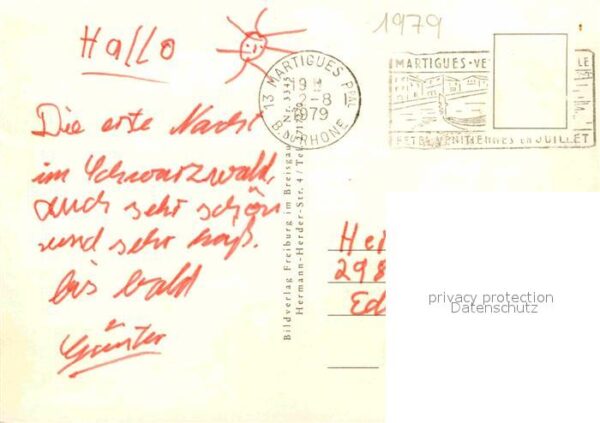 1979
Hallo
13 MARTIGUES Ppal
19 H
2-8
1979
B. DU RHONE
MARTIGUES-VE LE
FETES VENITIENNES en JUILLET
Die erte Nacht
im Schwarzwald,
auch sehr schön
und sehr naß.
bis bald
Günter
Bildverlag Freiburg im Breisgau
Hermann-Herder-Str. 4 / Tel.
Nr. 3345
Hei
298
Ed
privacy protection
Datenschutz